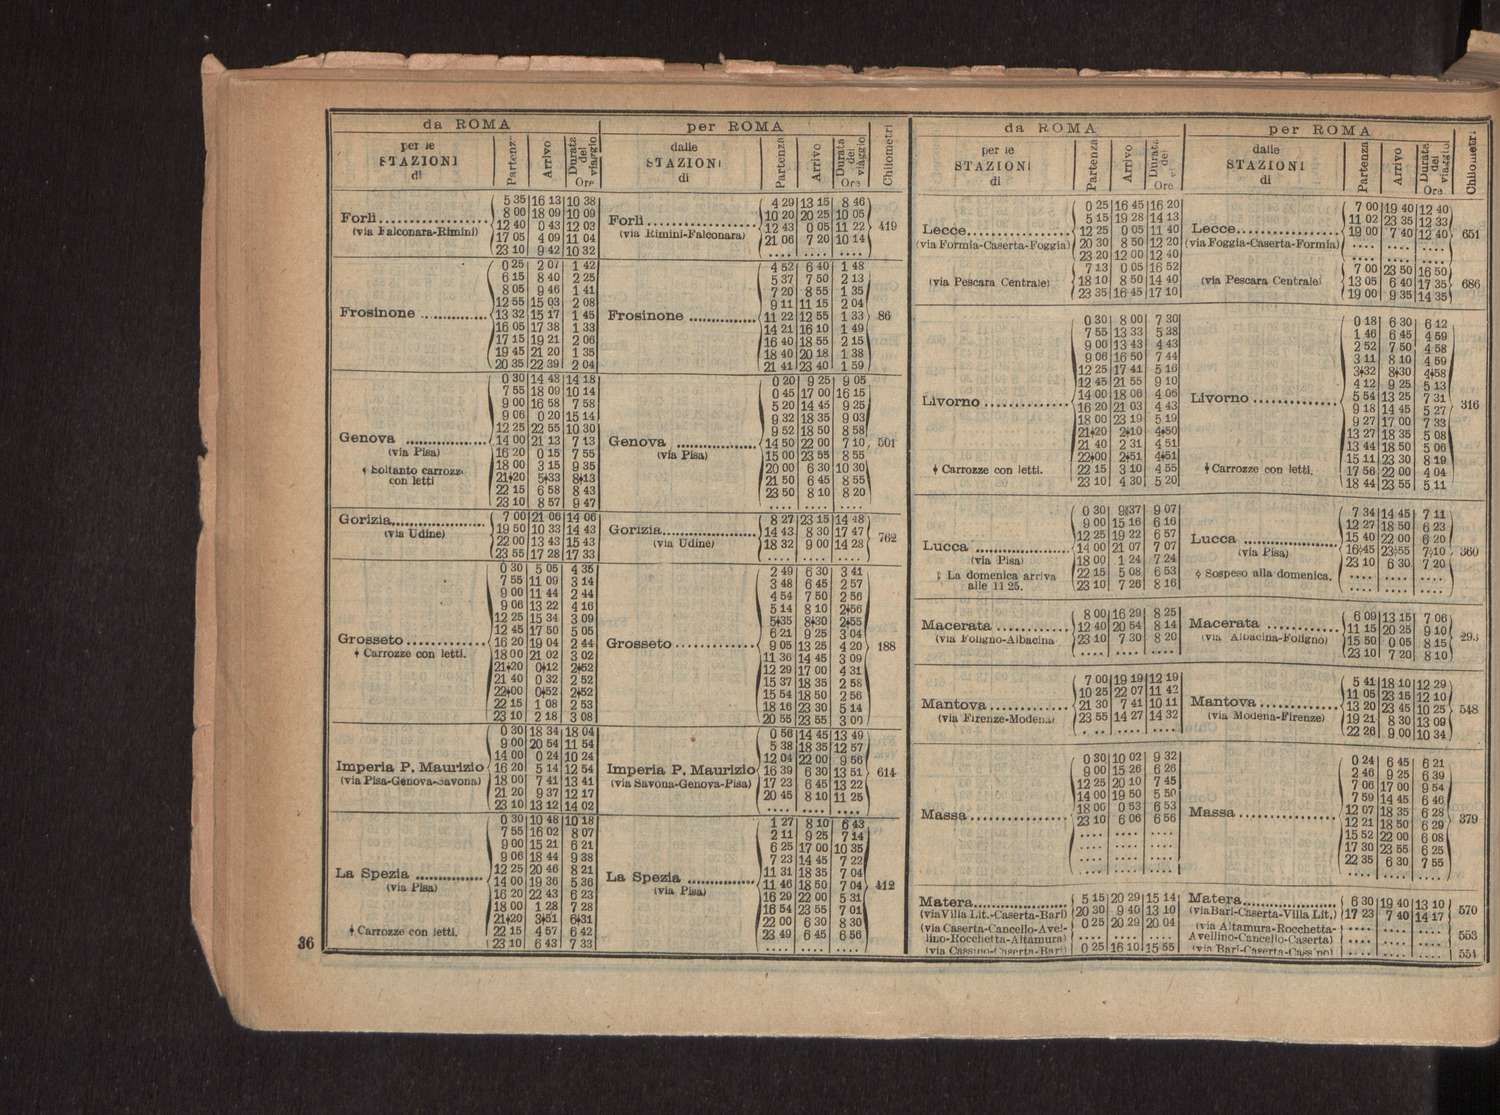 da ROMA
per ROMA
Chilometri
per le
STAZIONI
di
Partenz
Arrivo
Durata
del
viaggio
Ore
dalle
STAZIONI
di
Partenza
Arrivo
Durata
del
viaggio
Ore
Forlì
(via Falconara-Rimini)
5 35 16 13 10 38
8 00 18 09 10 09
12 40 0 43 12 03
17 05 4 09 11 04
23 10 9 42 10 32
Forlì
(via Rimini-Falconara)
4 29 13 15 8 46
10 20 20 25 10 05
12 43 0 05 11 22
21 06 7 20 10 14
.... .... ....
419
Frosinone
0 25 2 07 1 42
6 15 8 40 2 25
8 05 9 46 1 41
12 55 15 03 2 08
13 32 15 17 1 45
16 05 17 38 1 33
17 15 19 21 2 06
19 45 21 20 1 35
20 35 22 39 2 04
Frosinone
4 52 6 40 1 48
5 37 7 50 2 13
7 20 8 55 1 35
9 11 11 15 2 04
11 22 12 55 1 33
14 21 16 10 1 49
16 40 18 55 2 15
18 40 20 18 1 38
21 41 23 40 1 59
86
Genova
(via Pisa)
⸸ Soltanto carrozze
con letti
0 30 14 48 14 18
7 55 18 09 10 14
9 00 16 58 7 58
9 06 0 20 15 14
12 25 22 55 10 30
14 00 21 13 7 13
16 20 0 15 7 55
18 00 3 15 9 35
21⸸20 5⸸33 8⸸13
22 15 6 58 8 43
23 10 8 57 9 47
Genova
(via Pisa)
0 20 9 25 9 05
0 45 17 00 16 15
5 20 14 45 9 25
9 32 18 35 9 03
9 52 18 50 8 58
14 50 22 00 7 10
15 00 23 55 8 55
20 00 6 30 10 30
21 50 6 45 8 55
23 50 8 10 8 20
.... .... ....
501
Gorizia
(via Udine)
7 00 21 06 14 06
19 50 10 33 14 43
22 00 13 43 15 43
23 55 17 28 17 33
Gorizia
(via Udine)
8 27 23 15 14 48
14 43 8 30 17 47
18 32 9 00 14 28
.... .... ....
762
Grosseto
⸸ Carrozze con letti.
0 30 5 05 4 35
7 55 11 09 3 14
9 00 11 44 2 44
9 06 13 22 4 16
12 25 15 34 3 09
12 45 17 50 5 05
16 20 19 04 2 44
18 00 21 02 3 02
21⸸20 0⸸12 2⸸52
21 40 0 32 2 52
22⸸00 0⸸52 2⸸52
22 15 1 08 2 53
23 10 2 18 3 08
Grosseto
2 49 6 30 3 41
3 48 6 45 2 57
4 54 7 50 2 56
5 14 8 10 2⸸56
5⸸35 8⸸30 2⸸55
6 21 9 25 3 04
9 05 13 25 4 20
11 36 14 45 3 09
12 29 17 00 4 31
15 37 18 35 2 58
15 54 18 50 2 56
18 16 23 30 5 14
20 55 23 55 3 00
188
Imperia P. Maurizio
(via Pisa-Genova-Savona)
0 30 18 34 18 04
9 00 20 54 11 54
14 00 0 24 10 24
16 20 5 14 12 54
18 00 7 41 13 41
21 20 9 37 12 17
23 10 13 12 14 02
Imperia P. Maurizio
(via Savona-Genova-Pisa)
0 56 14 45 13 49
5 38 18 35 12 57
12 04 22 00 9 56
16 39 6 30 13 51
17 23 6 45 13 22
20 45 8 10 11 25
.... .... ....
614
La Spezia
(via Pisa)
⸸ Carrozze con letti.
0 30 10 48 10 18
7 55 16 02 8 07
9 00 15 21 6 21
9 06 18 44 9 38
12 25 20 46 8 21
14 00 19 36 5 36
16 20 22 43 6 23
18 00 1 28 7 28
21⸸20 3⸸51 6⸸31
22 15 4 57 6 42
23 10 6 43 7 33
La Spezia
(via Pisa)
1 27 8 10 6 43
2 11 9 25 7 14
6 25 17 00 10 35
7 23 14 45 7 22
11 31 18 35 7 04
11 46 18 50 7 04
16 29 22 00 5 31
16 54 23 55 7 01
22 00 6 30 8 30
23 49 6 45 6 56
.... .... ....
412
36
da ROMA
per ROMA
Chilometri
per le
STAZIONI
di
Partenza
Arrivo
Durata
del
Ore
dalle
STAZIONI
di
Partenza
Arrivo
Durata
del
viaggio
Ore
Lecce
(via Formia-Caserta-Foggia)
0 25 16 45 16 20
5 15 19 28 14 13
12 25 0 05 11 40
20 30 8 50 12 20
23 20 12 00 12 40
(via Pescara Centrale)
7 13 0 05 16 52
18 10 8 50 14 40
23 35 16 45 17 10
Lecce
(via Foggia-Caserta-Formia)
7 00 19 40 12 40
11 02 23 35 12 33
19 00 7 40 12 40
.... .... ....
.... .... ....
651
(via Pescara Centrale)
7 00 23 50 16 50
13 05 6 40 17 35
19 00 9 35 14 35
686
Livorno
⸸ Carrozze con letti.
0 30 8 00 7 30
7 55 13 33 5 38
9 00 13 43 4 43
9 06 16 50 7 44
12 25 17 41 5 16
12 45 21 55 9 10
14 00 18 06 4 06
16 20 21 03 4 43
18 00 23 19 5 19
21⸸20 2⸸10 4⸸50
21 40 2 31 4 51
22⸸00 2⸸51 4⸸51
22 15 3 10 4 55
23 10 4 30 5 20
Livorno
⸸ Carrozze con letti.
0 18 6 30 6 12
1 46 6 45 4 59
2 52 7 50 4 58
3 11 8 10 4 59
3⸸32 8⸸30 4⸸58
4 12 9 25 5 13
5 54 13 25 7 31
9 18 14 45 5 27
9 27 17 00 7 33
13 27 18 35 5 08
13 44 18 50 5 06
15 11 23 30 8 19
17 56 22 00 4 04
18 44 23 55 5 11
316
Lucca
(via Pisa)
⸸ La domenica arriva
alle 11 25.
0 30 9⸸37 9 07
9 00 15 16 6 16
12 25 19 22 6 57
14 00 21 07 7 07
18 00 1 24 7 24
22 15 5 08 6 53
23 10 7 26 8 16
Lucca
(via Pisa)
⸸ Sospeso alla domenica.
7 34 14 45 7 11
12 27 18 50 6 23
15 40 22 00 6 20
16⸸45 23⸸55 7⸸10
23 10 6 30 7 20
.... .... ....
.... .... ....
360
Macerata
(via Foligno-Albacina
8 00 16 29 8 25
12 40 20 54 8 14
23 10 7 30 8 20
.... .... ....
Macerata
(via Albacina-Foligno)
6 09 13 15 7 06
11 15 20 25 9 10
15 50 0 05 8 15
23 10 7 20 8 10
Mantova
(via Firenze-Modena)
7 00 19 19 12 19
10 25 22 07 11 42
21 30 7 41 10 11
23 55 14 27 14 32
.... .... ....
Mantova
(via Modena-Firenze)
5 41 18 10 12 29
11 05 23 15 12 10
13 20 23 45 10 25
19 21 8 30 13 09
22 26 9 00 10 34
548
Massa
0 30 10 02 9 32
9 00 15 26 6 26
12 25 20 10 7 45
14 00 19 50 5 50
18 00 0 53 6 53
23 10 6 06 6 56
.... .... ....
.... .... ....
.... .... ....
.... .... ....
Massa
0 24 6 45 6 21
2 46 9 25 6 39
7 06 17 00 9 54
7 59 14 45 6 46
12 07 18 35 6 28
12 21 18 50 6 29
15 52 22 00 6 08
17 30 23 55 6 25
22 35 6 30 7 55
.... .... ....
379
Matera
(via Villa Lit.-Caserta-Bari)
5 15 20 29 15 14
20 30 9 40 13 10
(via Caserta-Cancello-Avel-
lino-Rocchetta-Altamura)
0 25 20 29 20 04
.... .... ....
(via Cassino-Caserta-Bari)
0 25 16 10 15 55
Matera
(via Bari-Caserta-Villa Lit,)
6 30 19 40 13 10
17 23 7 40 14 17
570
(via Altamura-Rocchetta-
Avellino-Cancello-Caserta)
.... .... ....
.... .... ....
553
(via Bari-Caserta-Cassino)
.... .... ....
551